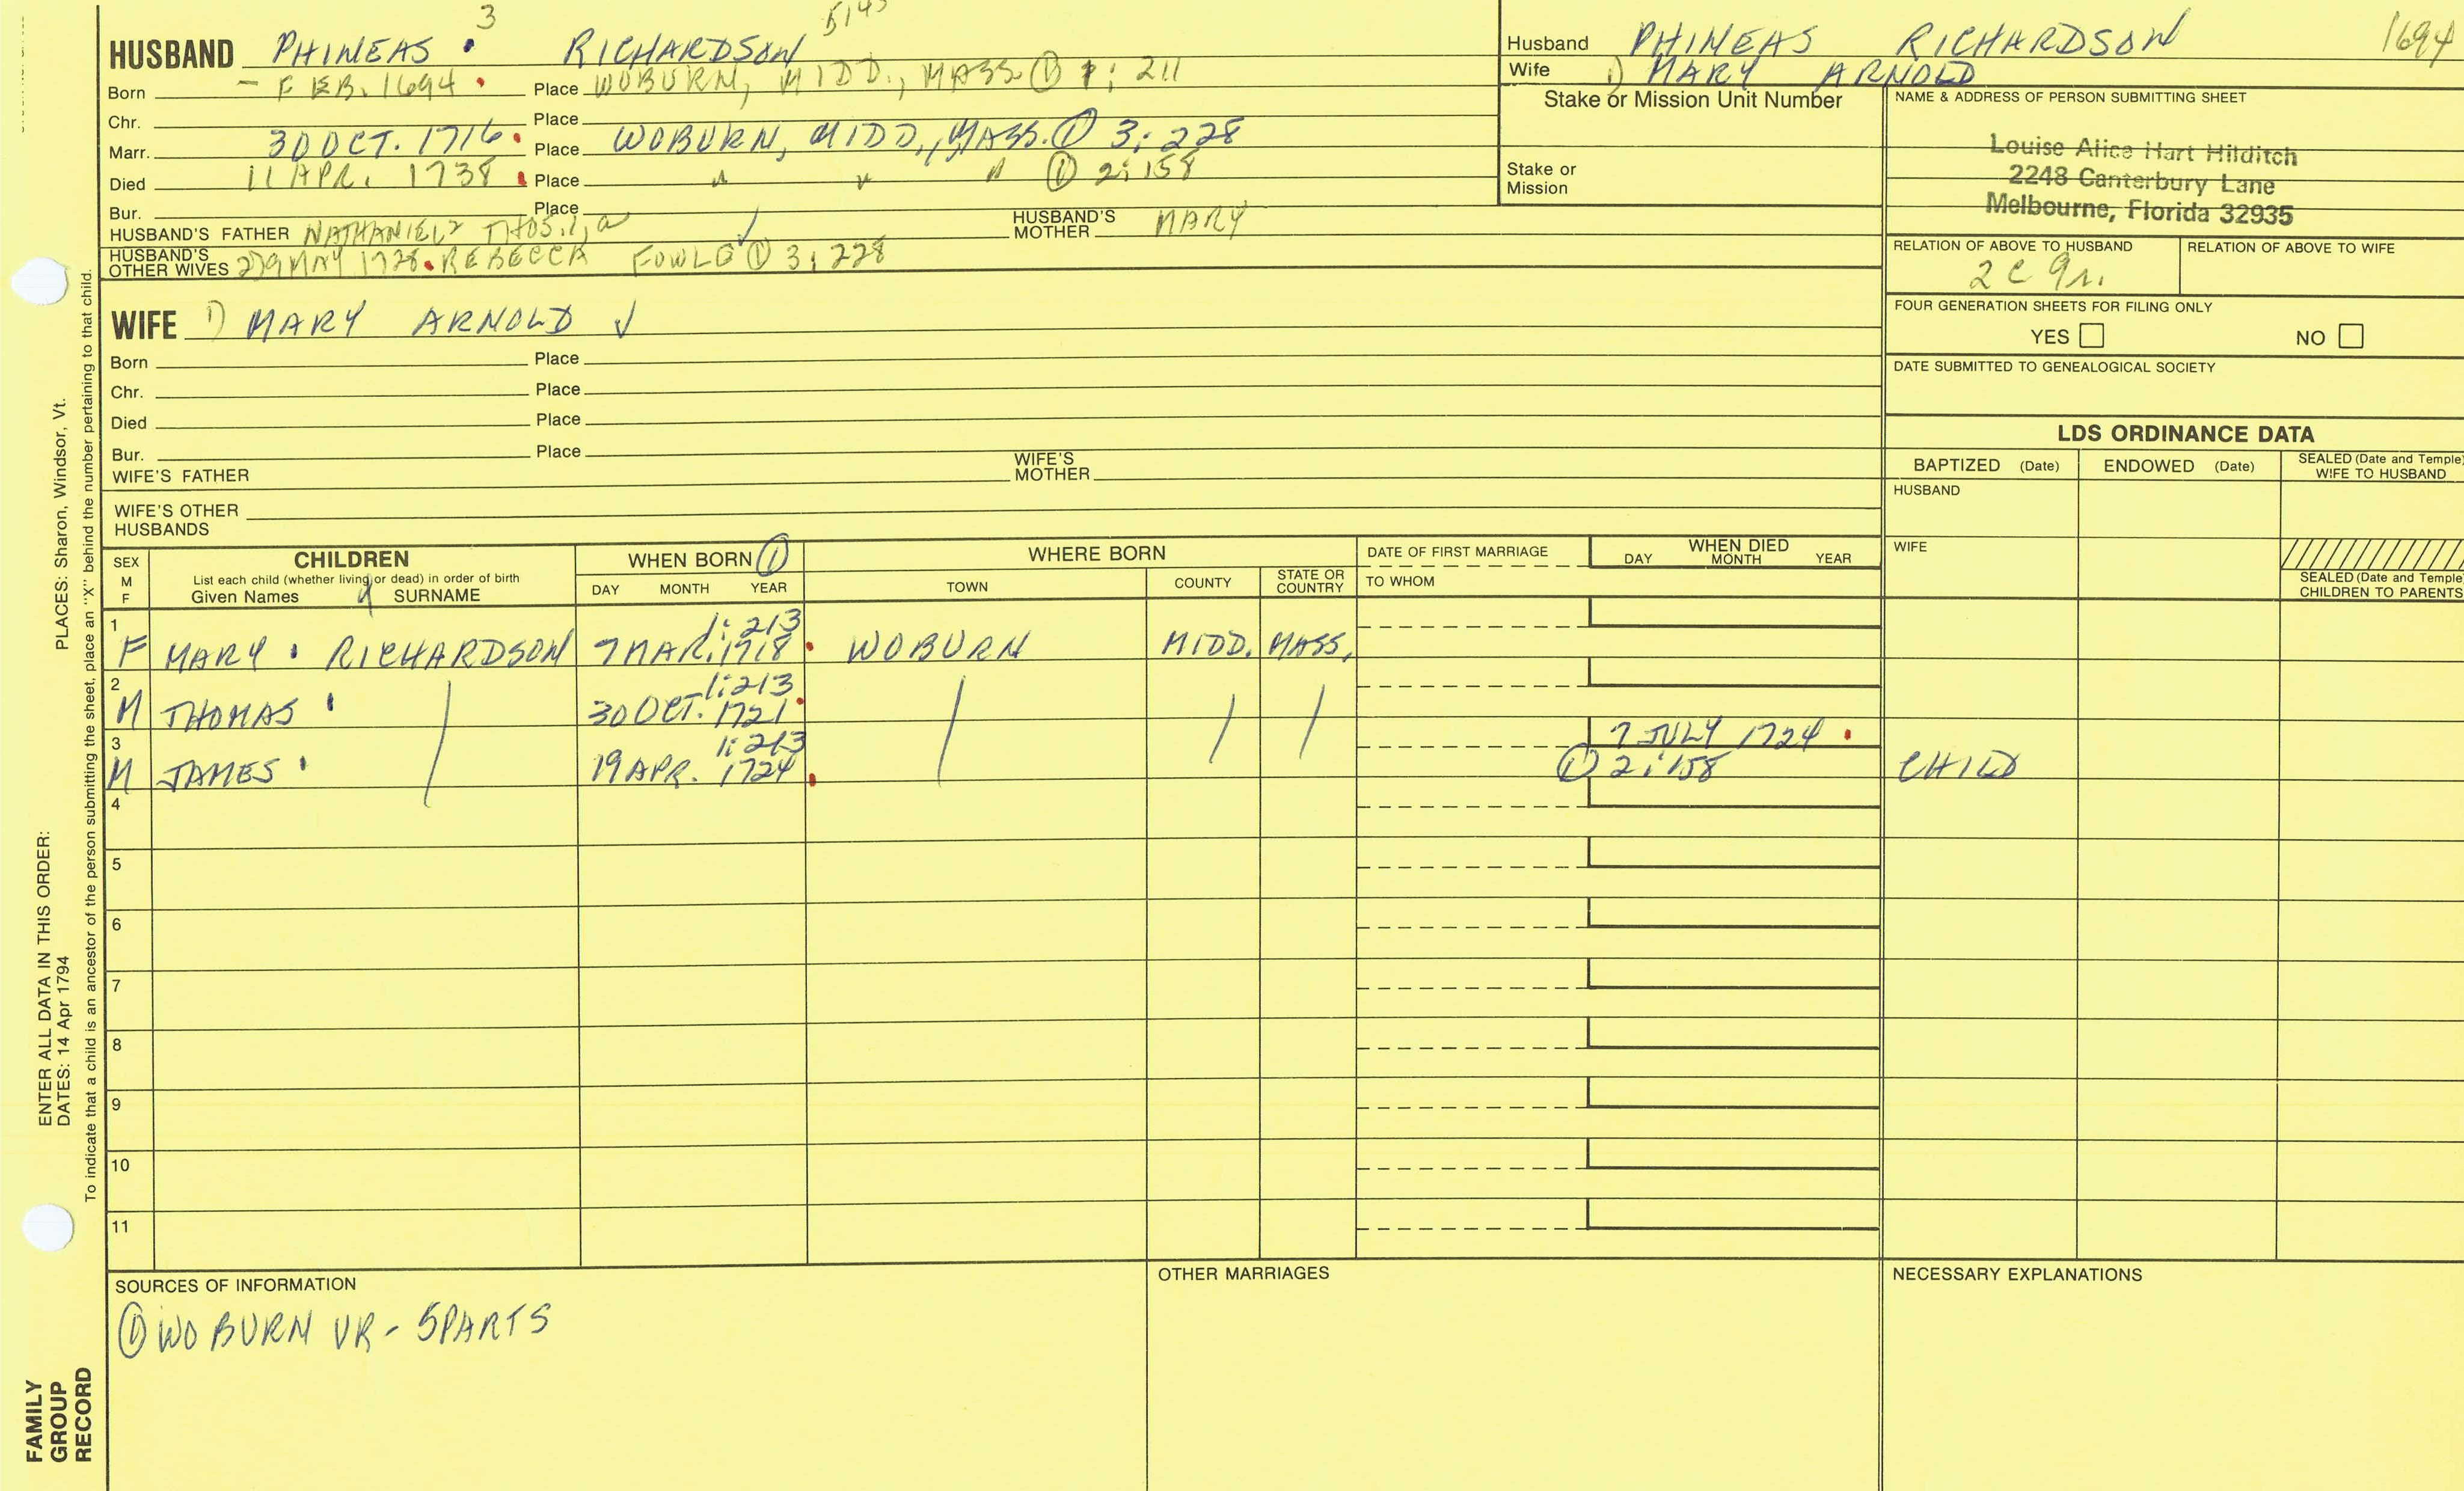 3 5145
HUSBAND PHINEAS RICHARDSON
Born - FEB. 1694 . Place WOBURN, MIDD., MASS. ① 1: 211
Chr. Place
Marr. 30 OCT. 1716 . Place WOBURN, MIDD., MASS. ① 3: 228
Died 11 APR. 1738 . Place " " " ① 2: 158
Bur. Place
HUSBAND'S FATHER NATHANIEL2 THOS.1, a ✓ HUSBAND'S MOTHER MARY
HUSBAND'S OTHER WIVES 2) 9 MAY 1728. REBECCA FOWLE ① 3: 228
Husband PHINEAS RICHARDSON 1694
Wife 1) MARY ARNOLD
Stake or Mission Unit Number
Stake or Mission
NAME & ADDRESS OF PERSON SUBMITTING SHEET
Louise Alice Hart Hilditch
2248 Canterbury Lane
Melbourne, Florida 32935
RELATION OF ABOVE TO HUSBAND RELATION OF ABOVE TO WIFE
2 c 9r.
FOUR GENERATION SHEETS FOR FILING ONLY
YES NO
DATE SUBMITTED TO GENEALOGICAL SOCIETY
WIFE 1) MARY ARNOLD ✓
Born Place
Chr. Place
Died Place
Bur. Place
WIFE'S FATHER WIFE'S MOTHER
WIFE'S OTHER HUSBANDS
LDS ORDINANCE DATA
BAPTIZED (Date) ENDOWED (Date) SEALED (Date and Temple) WIFE TO HUSBAND
HUSBAND
WIFE
SEALED (Date and Temple) CHILDREN TO PARENTS
SEX M F
CHILDREN
List each child (whether living or dead) in order of birth
Given Names SURNAME
WHEN BORN ①
DAY MONTH YEAR
WHERE BORN
TOWN COUNTY STATE OR COUNTRY
DATE OF FIRST MARRIAGE
TO WHOM
WHEN DIED
DAY MONTH YEAR
1 1: 213
F MARY . RICHARDSON 7 MAR. 1718 . WOBURN MIDD. MASS.
2 1: 213
M THOMAS 30 OCT. 1721 .
3 1: 213 7 JULY 1724 .
M JAMES 19 APR. 1724 . ① 2: 158 CHILD
4
5
6
7
8
9
10
11
SOURCES OF INFORMATION
① WOBURN VR - 5PARTS
OTHER MARRIAGES
NECESSARY EXPLANATIONS
ENTER ALL DATA IN THIS ORDER:
DATES: 14 Apr 1794 PLACES: Sharon, Windsor, Vt.
To indicate that a child is an ancestor of the person submitting the sheet, place an "X" behind the number pertaining to that child.
FAMILY
GROUP
RECORD